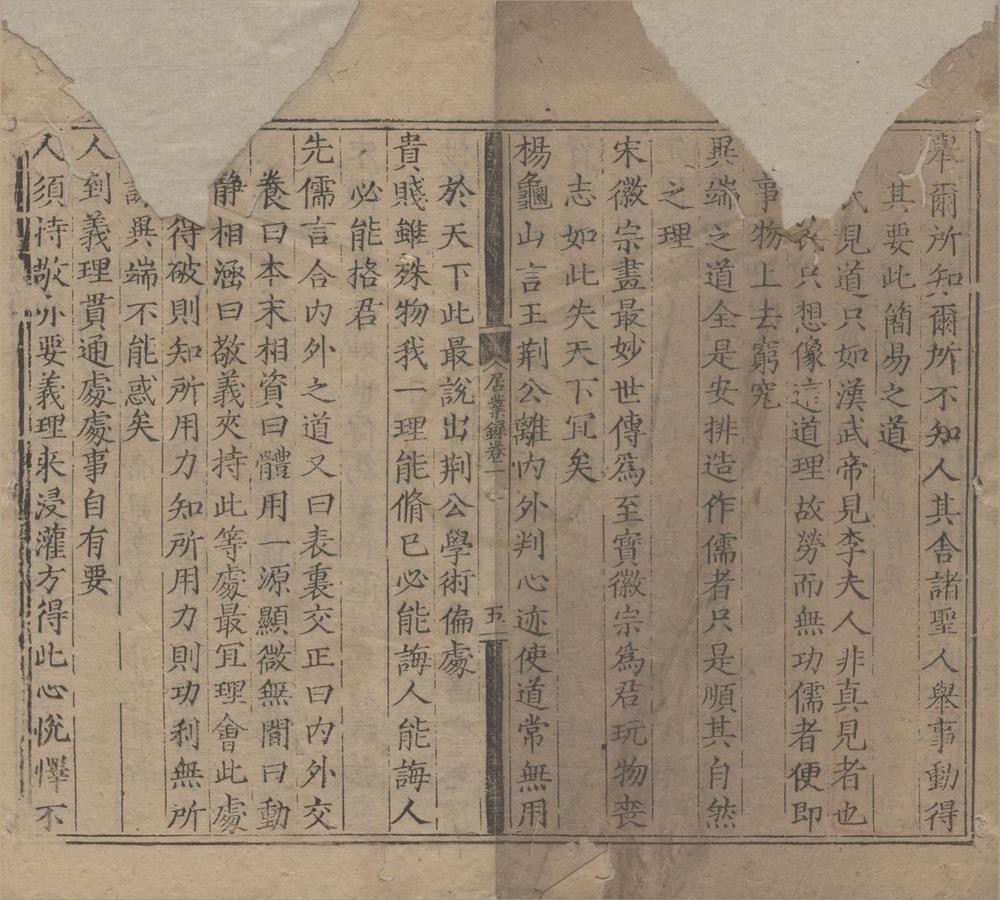 舉爾所知爾所不知人其舍諸聖人舉事動得
其要此簡易之道
氏見道只如漢武帝見李夫人非真見者也
氏只想像這道理故勞而無功儒者便即
事物上去窮究
異端之道全是安排造作儒者只是順其自然
之理
宋徽宗畫最妙世傳爲至寶徽宗爲君玩物喪
志如此失天下宜矣
楊龜山言王荆公離內外判心迹使道常無用
居業錄卷一
五
於天下此最說出荆公學術偏處
貴賤雖殊物我一理能脩已必能誨人能誨人
必能格君
先儒言合内外之道又曰表裏交正曰内外交
養曰本末相資曰體用一源顯微無間曰動
静相涵曰敬義夾持此等處最宜理會此處
得破則知所用力知所用力則功利無所
異端不能惑矣
人到義理貫通處處事自有要
人須持敬亦要義理來浸灌方得此心悦懌不